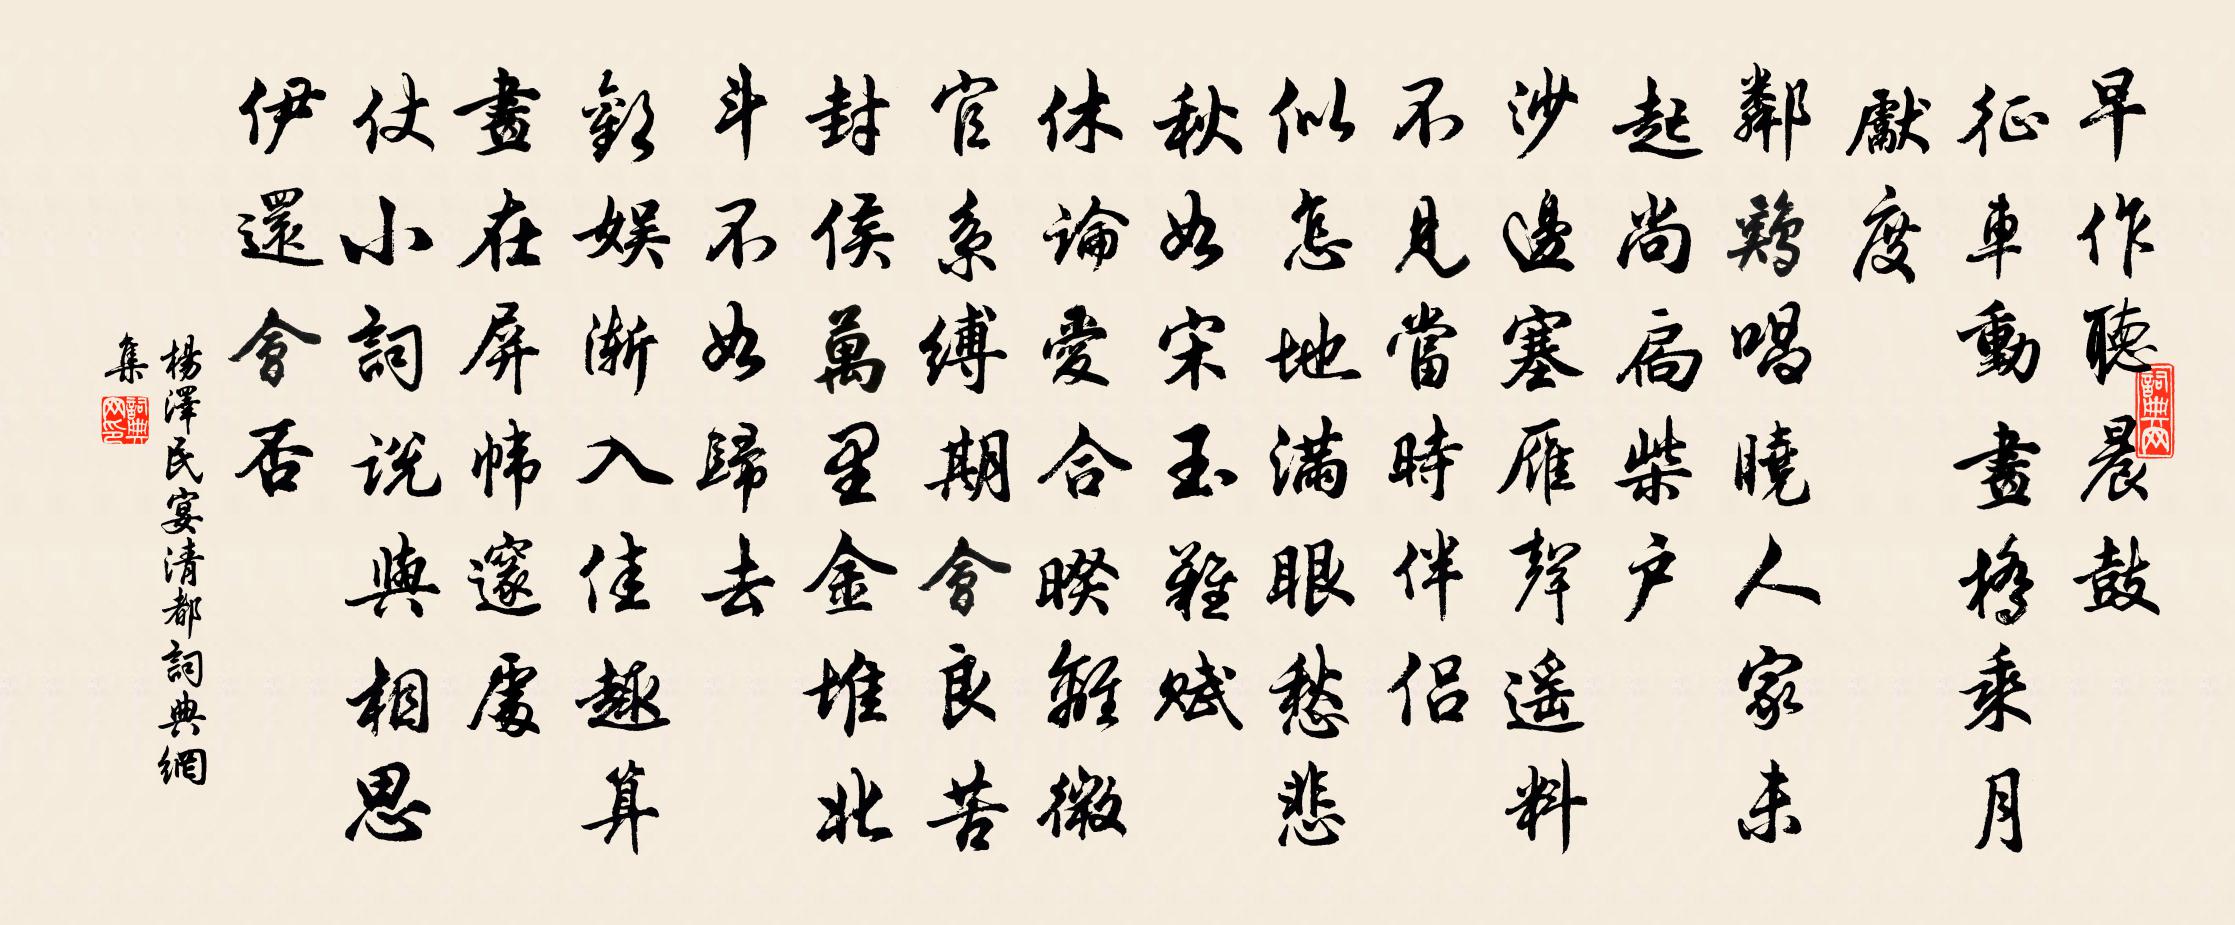 早作聽晨鼓
征車動畫橋乘月
獻度
鄰鷄唱曉人家未
起尚扃柴户
沙邊塞雁聲遥料
不見當時伴侣
似怎地滿眼愁悲
秋如宋玉難賦
休論愛合暌離微
官系縛期會良苦
封侯萬里金堆北
斗不如歸去
歡娱漸入佳趣算
畫在屏幃邃處
仗小詞説與相思
伊還會否
楊澤民宴清都詞典網
集
詞典网
詞典网印